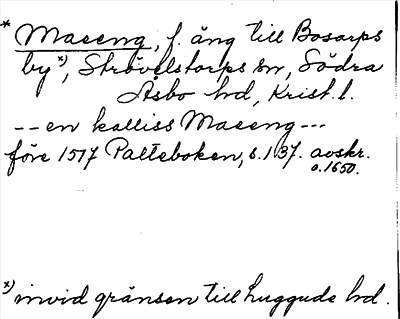 * Maeeng, f. äng till Bosarps
by x), Strövelstorps sn, Södra
Åsbo hd, Krist. l.
-- en kalliss Maeeng ---
före 1517 Palteboken, s. 137. avskr.
o. 1650.
x) invid gränsen till Luggude hd.